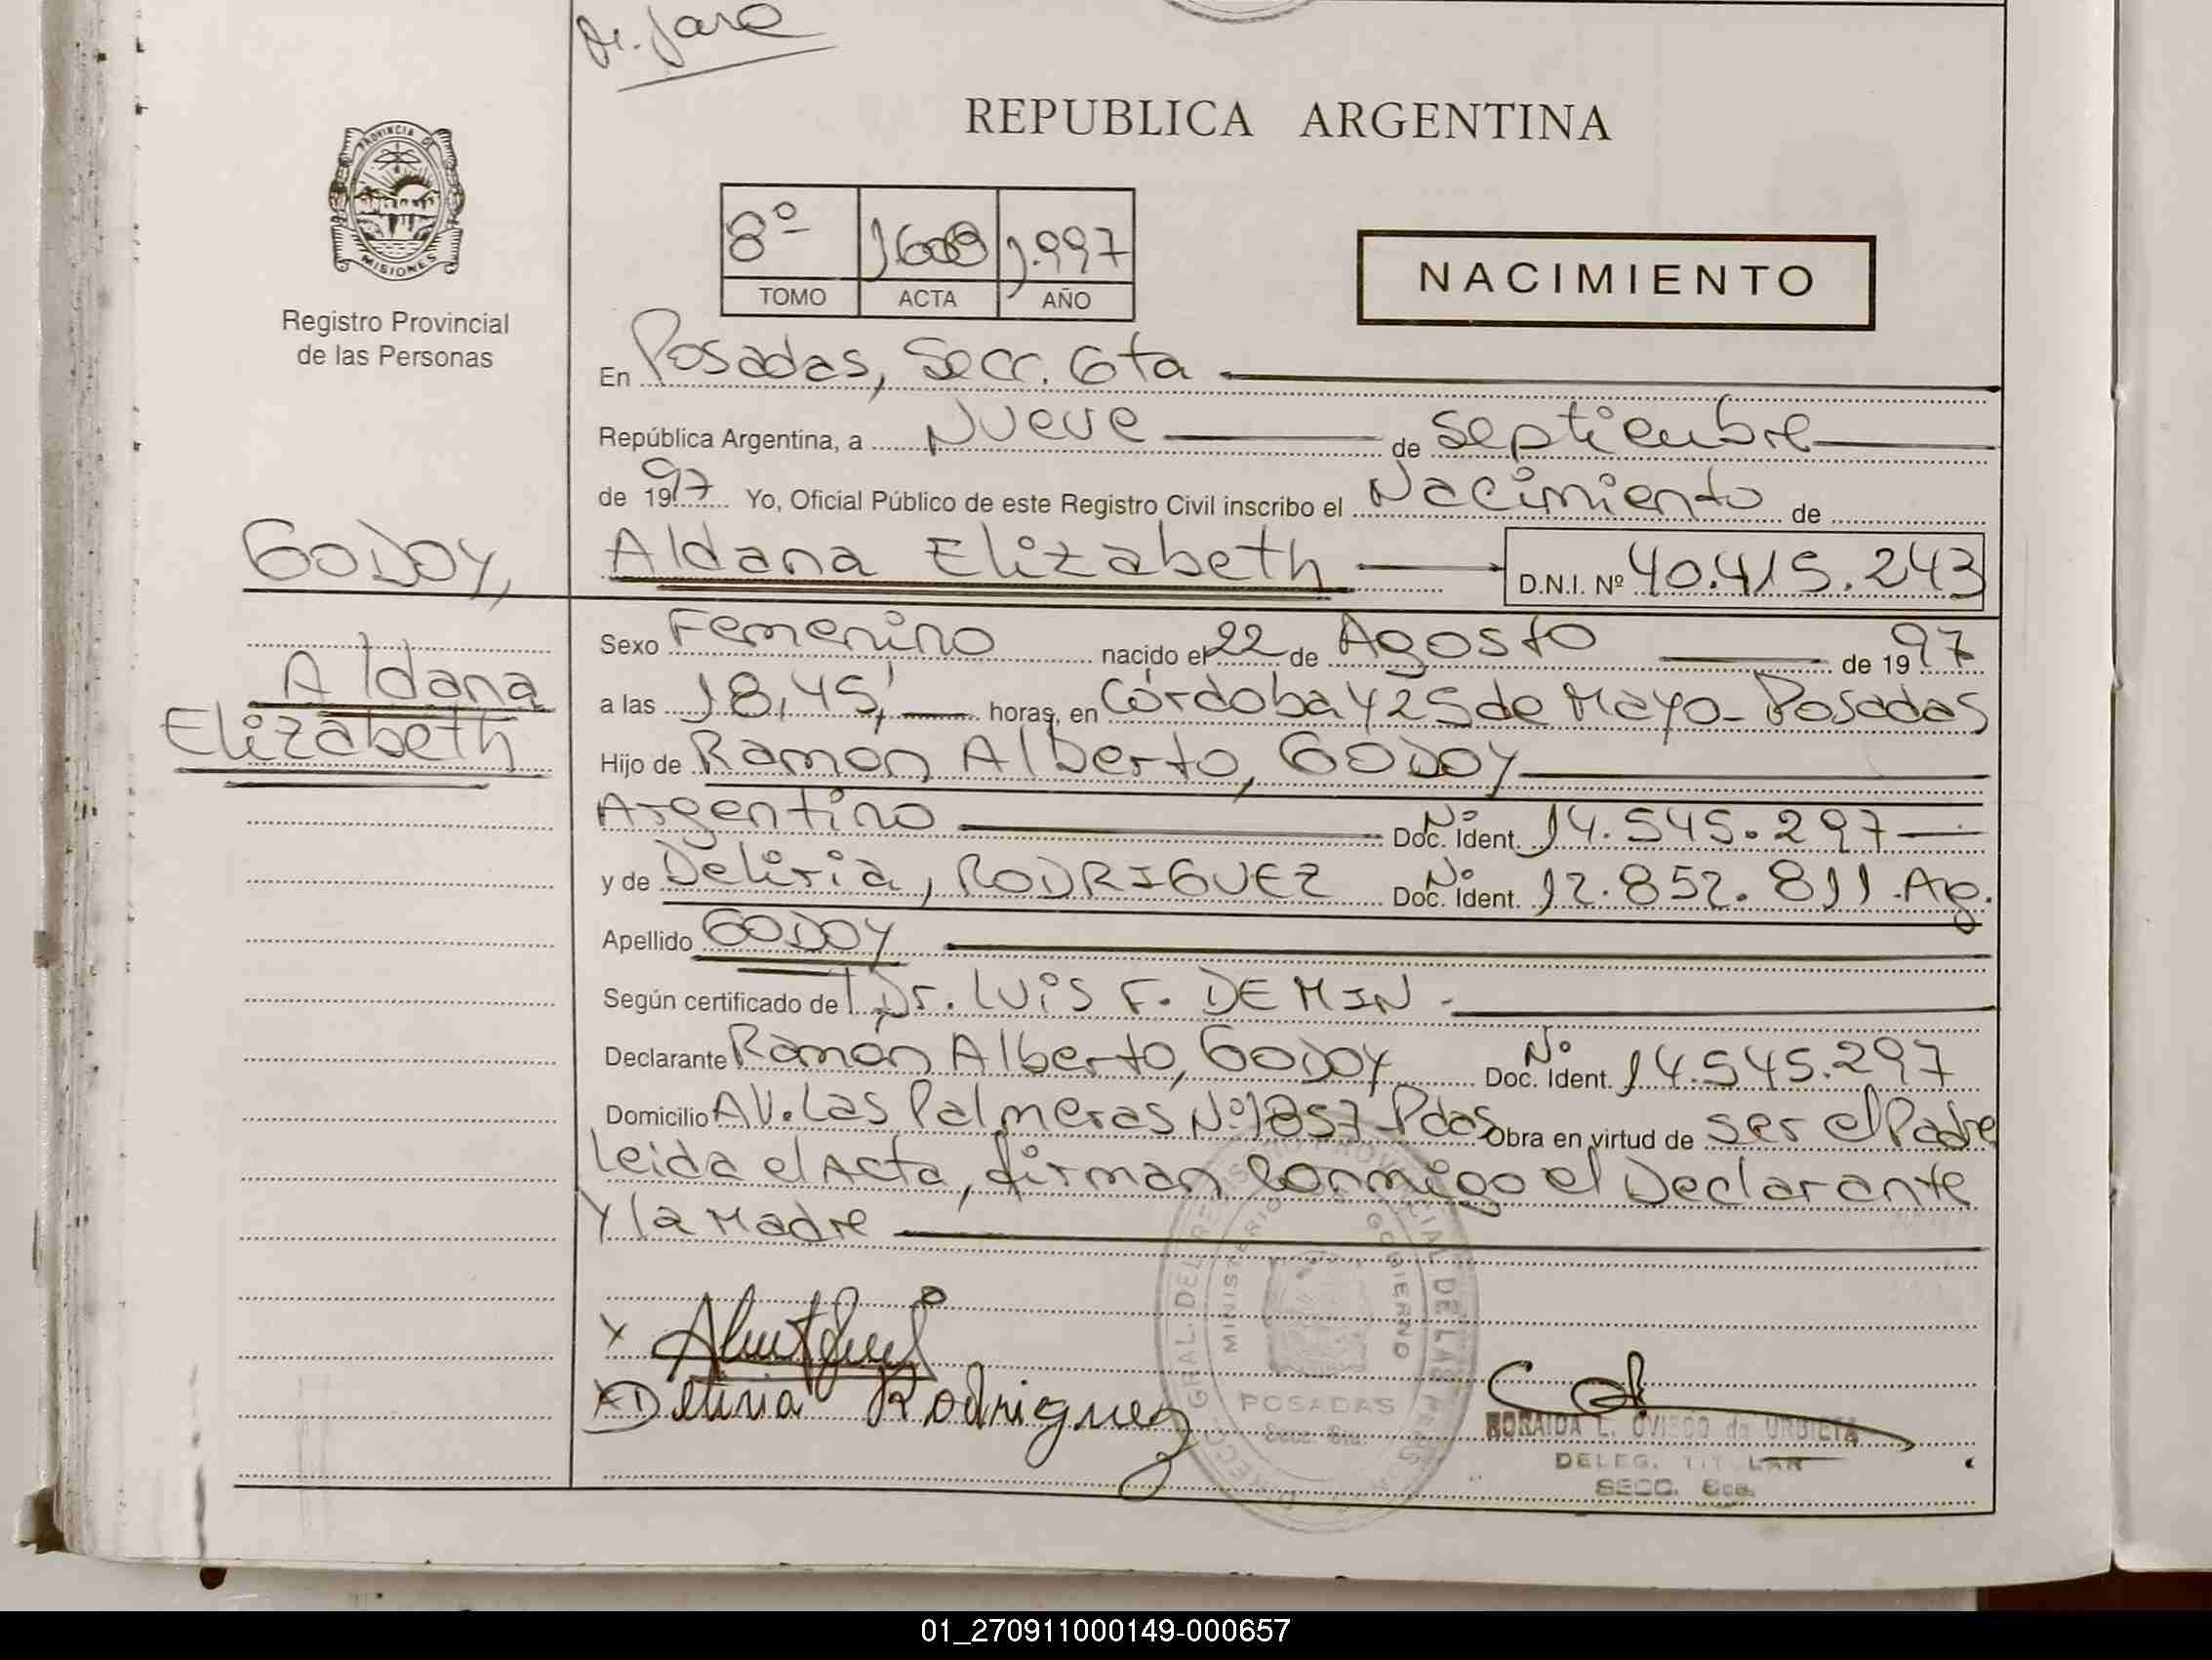 Dr. Jara
REPUBLICA ARGENTINA
PROVINCIA DE
MISIONES
Registro Provincial
de las Personas
8º 1.608 1.997
TOMO ACTA AÑO
NACIMIENTO
En Posadas, Secc. 6ta
República Argentina, a Nueve de Septiembre
de 1997 Yo, Oficial Público de este Registro Civil inscribo el Nacimiento de
GODOY,
Aldana Elizabeth D.N.I. Nº 40.415.243
Aldana
Elizabeth
Sexo Femenino nacido el 22 de Agosto de 1997
a las 18,45, horas, en Córdoba y 25 de Mayo - Posadas
Hijo de Ramón Alberto, GODOY
Argentino Doc. Ident. Nº 14.545.297
y de Deliria, RODRIGUEZ Doc. Ident. Nº 12.852.811 Ag.
Apellido GODOY
Según certificado del Dr. Luis F. DEMIN.
Declarante Ramón Alberto, GODOY Doc. Ident. Nº 14.545.297
Domicilio AV. Las Palmeras Nº 1857 Pdas Obra en virtud de ser el Padre
Leida el Acta, firman conmigo el Declarante
y la Madre
X
X Deliria Rodriguez
MINISTERIO GOBIERNO
POSADAS
Secc. 6ta.
L. OVIEDO de URBIETA
DELEG. TITULAR
SECC. 6ta.
01_270911000149-000657